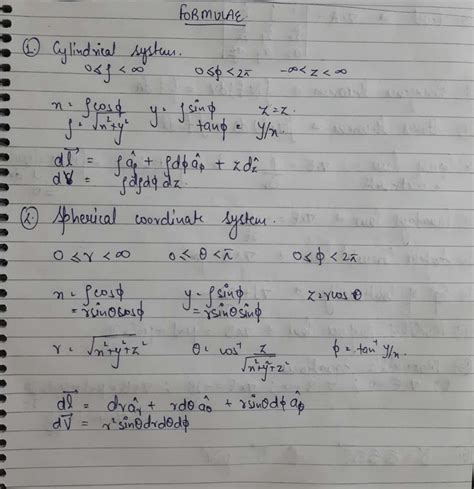 FORMULAE
1. Cylindrical system.
0 ≤ ρ < ∞ 0 ≤ ϕ < 2π -∞ < z < ∞
x = ρcosϕ y = ρsinϕ z = z.
ρ = √x²+y² tanϕ = y/x.
dl⃗ = ρ âρ + ρdϕ âϕ + z dẑ
dV = ρdρdϕ dz.
2. Spherical coordinate system.
0 ≤ r < ∞ 0 ≤ θ < π 0 ≤ ϕ < 2π
x = ρcosϕ y = ρsinϕ z = rcosθ
= rsinθcosϕ = rsinθsinϕ
r = √x²+y²+z² θ = cos⁻¹ z/√x²+y²+z² ϕ = tan⁻¹ y/x.
dl⃗ = dr âr + rdθ âθ + rsinθdϕ âϕ
dV⃗ = r²sinθdrdθdϕ